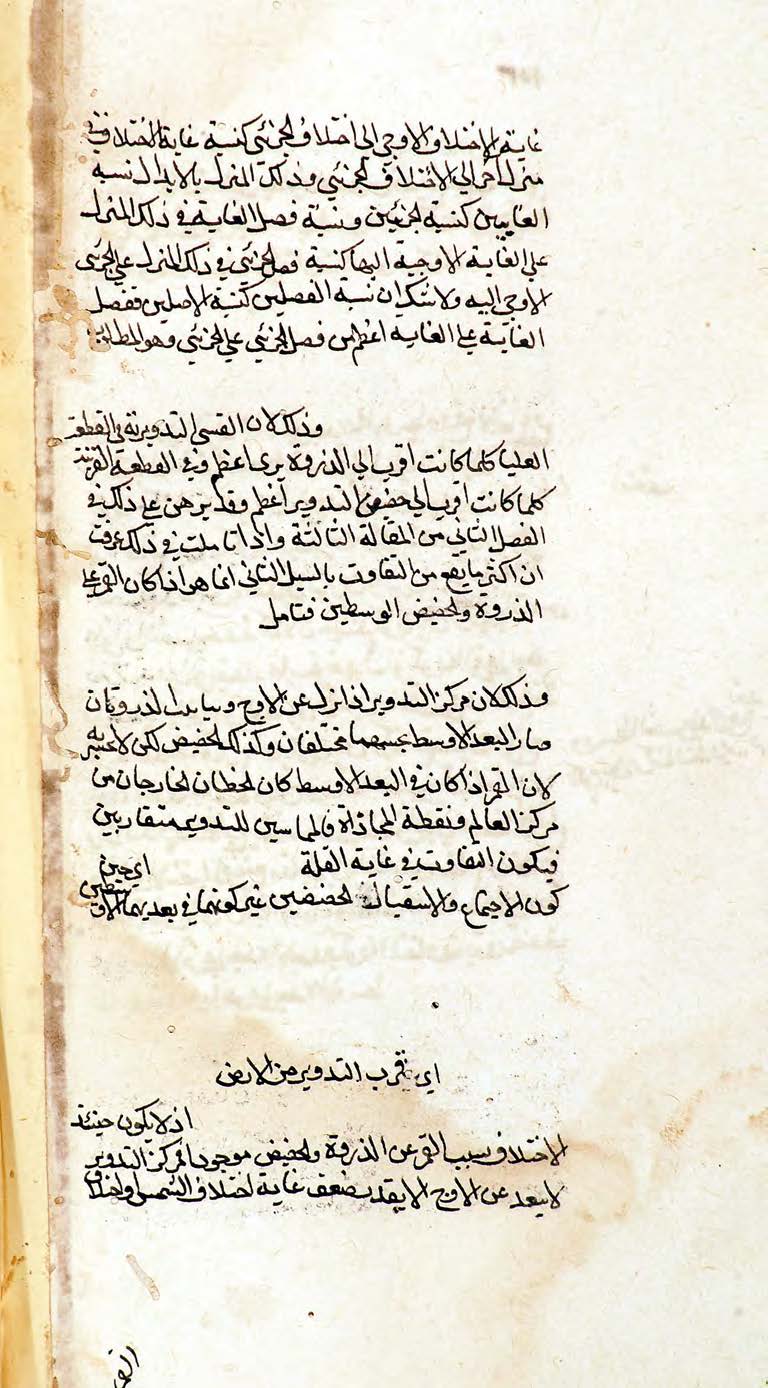 غاية الاختلاف الاوجي الى اختلاف الجزئي كنسبة غاية الاختلاف في
منزل آخر الى الاختلاف الجزئي وذلك المنزل بالابدال نسبة
الغايتين كنسبة الجزئيين ونسبة فصل الغاية في ذلك المنزل
على الغاية الاوجية اليها كنسبة فصل الجزئي في ذلك المنزل على الجزئى
الاوجي اليه ولا شك ان نسبة الفصلين كنسبة الاصلين ففصل
الغاية على الغاية اعظم من فصل الجزئي على الجزئي وهو المطلوب
وذلك لان القسى التدويرية في القطعة
العليا كلما كانت اقرب الى الذروة يرى اعظم وفي القطعة القريبة
كلما كانت اقرب الى حضيض التدوير اعظم وقد برهن على ذلك في
الفصل الثاني من المقالة الثالثة واذا تاملت في ذلك عرفت
ان اكثر ما يقع من التفاوت بالسبيل الثاني انما هو اذا كان القمر على
الذروة والحضيض الوسطين فتامل
وذلك لان مركز التدوير اذا نزل عن الاوج وتباعد الذروتان
صار البعد الاوسط بحسبهما مختلفان وكذلك الحضيض لكن لا عبرة به
لان القمر اذا كان في البعد الاوسط كان الخطان الخارجان من
مركز العالم ونقطة المحاذاة والمماسين للتدوير متقاربين
فيكون التفاوت في غاية القلة
اي حين
كون الاجتماع والاستقبال الحضيضين غير كونهما في بعديهما الاوسطين
اي بقرب التدوير من الارض
اذ لا يكون حينئذ
الاختلاف بسبب القمر عن الذروة والحضيض موجودا مركز التدوير
لا يبعد عن الاوج الا بقدر ضعف غاية اختلاف الشمس واختلاف
القمر